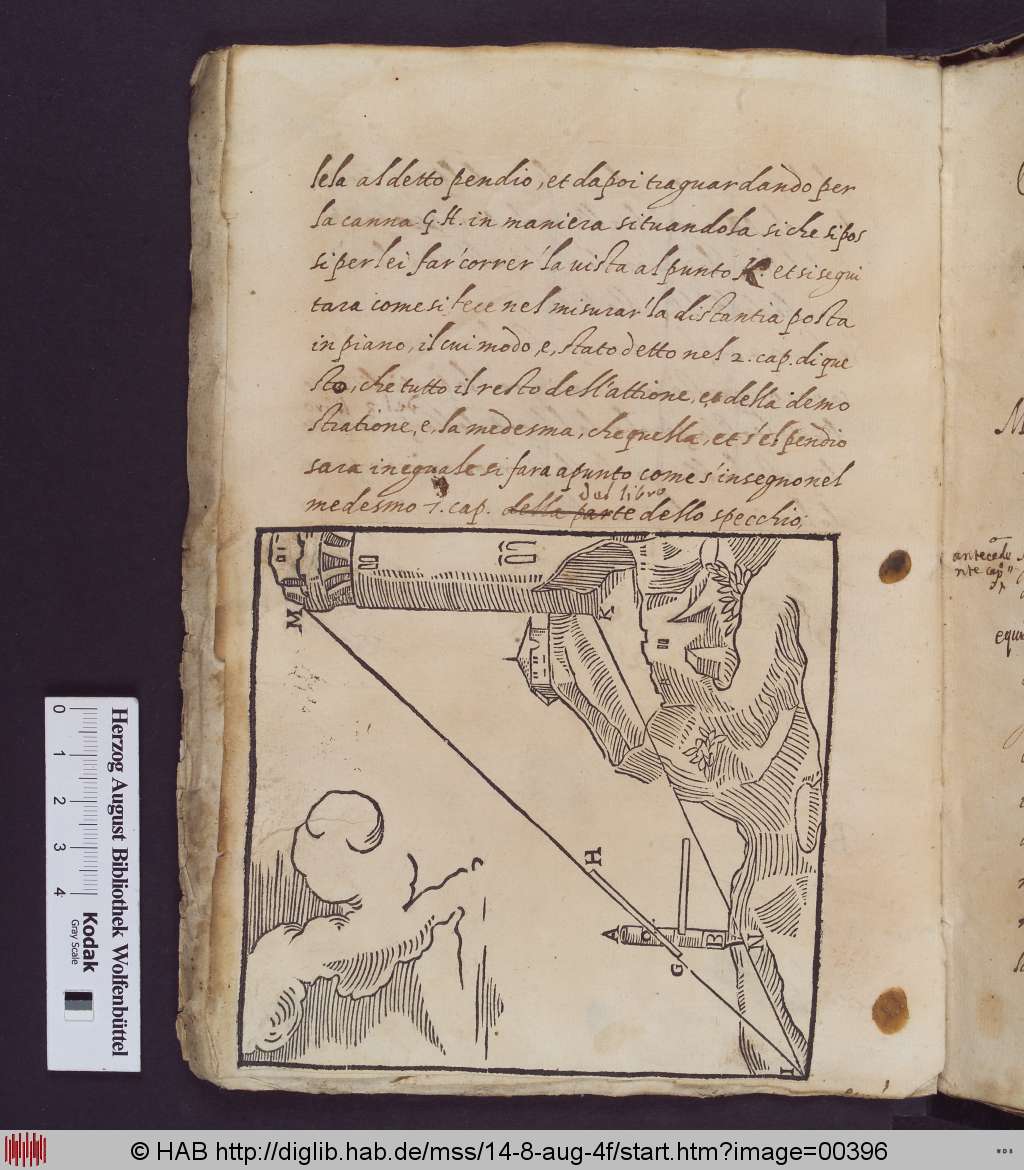 lela al detto pendio, et dapoi traguardando per
la canna G.H. in maniera situandola si che si pos
si per lei far' correr' la vista al punto K. et si segui
tara come si fece nel misurar' la distantia posta
in piano, il cui modo, e, stato detto nel 2. cap. di que
sto, che tutto il resto dell'attione, e, della demo
stratione, e, la medesma, che quella, et s'el pendio
sara ineguale si fara apunto come s'insegno nel
del libro
medesmo 7. cap. della parte dello specchio,
M
K
H
A
B
N
G
I
antecede
nte cap°
equi
0 1 2 3 4
Herzog August Bibliothek Wolfenbüttel
Kodak
Gray Scale
© HAB http://diglib.hab.de/mss/14-8-aug-4f/start.htm?image=00396